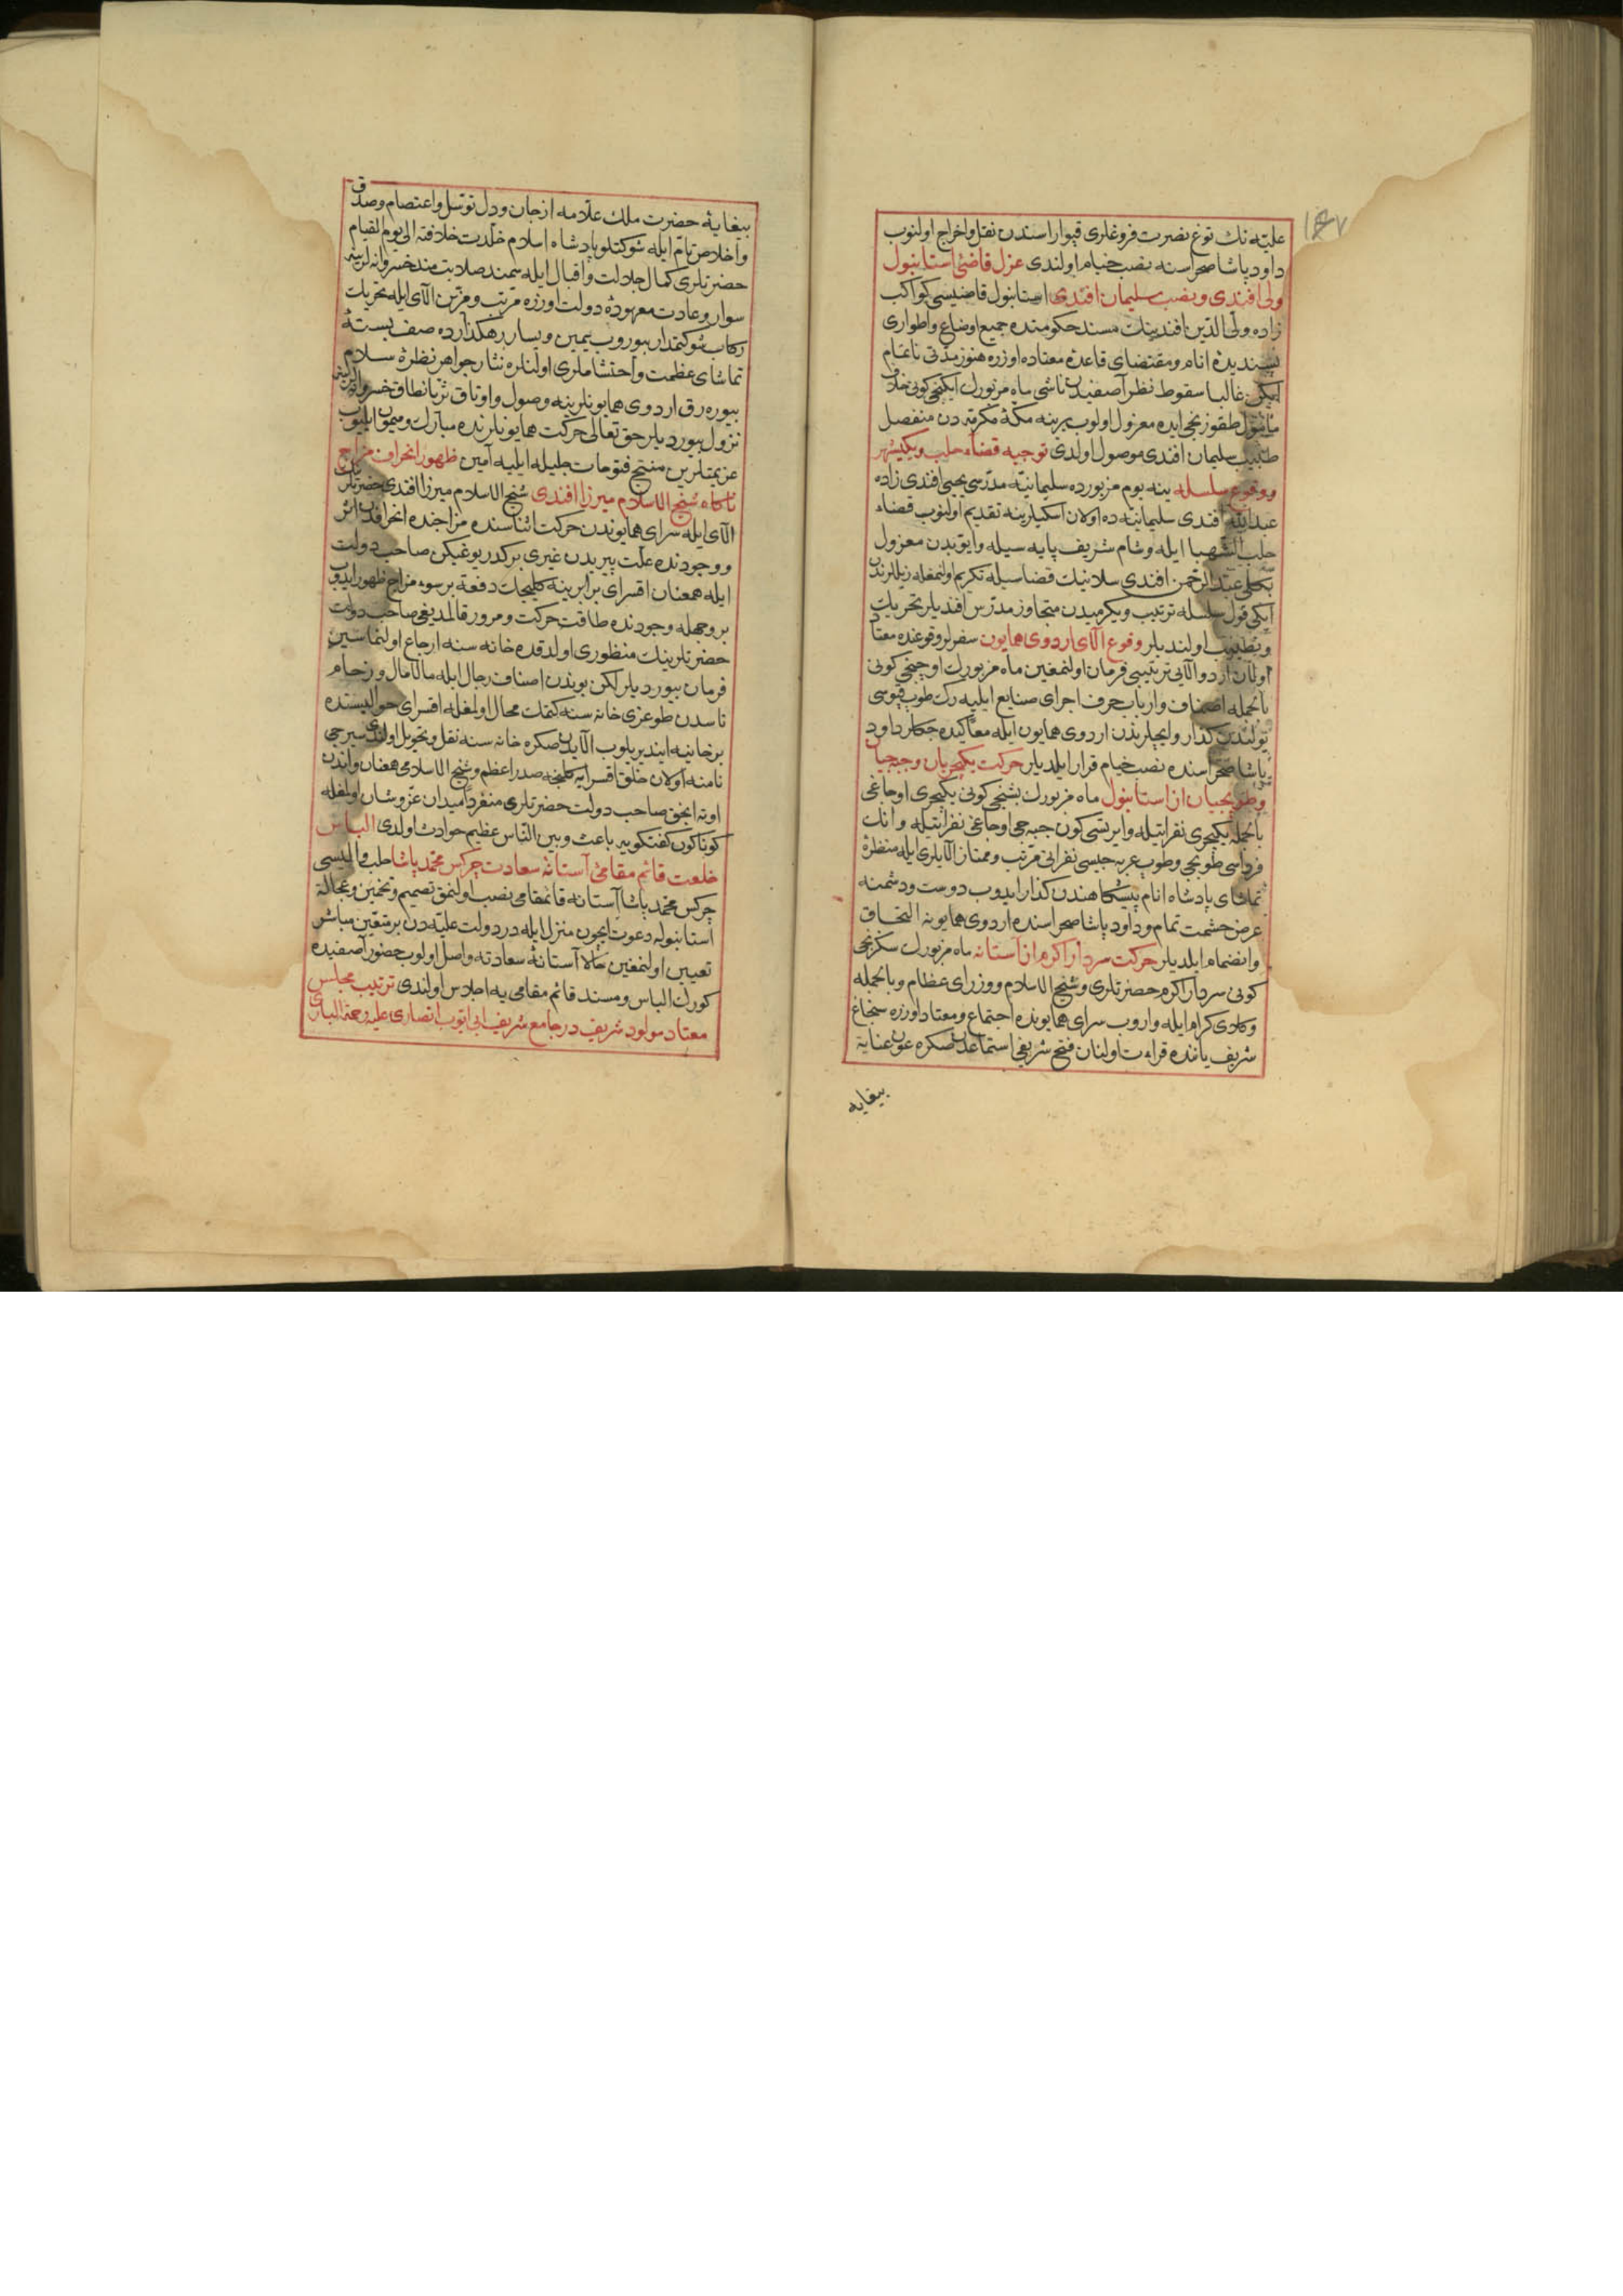 ١٤٧
علیه نك توغ نصرت فروغلری قپوار اسندن نقل و اخراج اولنوب
داود پاشا صحراسنه نصب خیام اولندی عزل قاضئ استانبول
ولی افندی و نصب سلیمان افندی استانبول قاضیسی کواکب
زاده ولی الدین افندینك مسند حکومتده جمیع اوضاع و اطواری
پسندیدۀ انام و مقتضای قاعدۀ معتاده اوزره هنوز مدتی ناتمام
ایکن غالبا سقوط نظر آصفیدن ناشی ماه مزبورك ایکنجی کونی خلاف
مأمول طقوزنجی ایده معزول اولوب یرینه مکۀ مکرمه دن منفصل
طبیب سلیمان افندی موصول اولدی توجیه قضاء حلب و یکیشهر
و وقوع سلسله ینه یوم مزبورده سلیمانیه مدرسی یحیی افندی زاده
عبدالله افندی سلیمانیه ده اولان اسکیلرینه تقدیم اولنوب قضاء
حلب الشهبا ایله و شام شریف پایه سیله و ایوبدن معزول
عبدالرحمن افندی سلانیك قضاسیله تکریم اولنمغله
ایکی قول سلسله ترتیب و یکرمیدن متجاوز مدرس افندیلر تحریك
و تطییب اولندیلر وقوع الای اردوی همایون سفرلر وقوعنده معتاد
اولان اردو الایی ترتیبی فرمان اولنمغین ماه مزبورك اوچنجی کونی
بالجمله اصناف و ارباب حرف اجرای صنایع ایلیه رك طوب قپوسی
یولندن کذار و ایچلرندن اردوی همایون ایله معا کیده جکلر داود
پاشا صحراسنده نصب خیام قرار ایلدیلر حرکت یکیچریان و جبه جیان
و طوپجیان از استانبول ماه مزبورك بشنجی کونی یکیچری اوجاغی
بالجمله یکیچری نفراتیله و ایرتسی کون جبه جی اوجاغی نفراتیله و انك
فرداسی طوپجی و طوپ عربه جیسی نفراتی مرتب و ممتاز الایلری ایله منظرۀ
تماشای پادشاه انام پیشکاهندن کذار ایدوب دوست و دشمنه
عرض حشمت تمام و داود پاشا صحراسنده اردوی همایونه التحاق
و انضمام ایلدیلر حرکت سردار اکرم از آستانه ماه مزبورك سکزنجی
کونی سردار اکرم حضرتلری و شیخ الاسلام و وزرای عظام و بالجمله
رکاوی کرام ایله واروب سرای همایونده اجتماع و معتاد اوزره سنجاغ
شریف یاننده قرائت اولنان فتح شریفی استماعدن صکره عون عنایة
بیغایه
بیغایۀ حضرت ملك علامه از جان و دل توسل و اعتصام و صدق
و اخلاص تام ایله شوکتلو پادشاه اسلام خلدت خلافته الی یوم القیام
حضرتلری کمال جلالت و اقبال ایله سمند صلابتمند خسروانه لرینه
سوار و عادت معهودۀ دولت اوزره مرتب و مزین الای ایله تحریك
رکاب شوکتمدار بیوروب یمین و یسار رهکذارده صف بستۀ
تماشای عظمت و احتشاملری اولنلره نثار جواهر نظرۀ سلام
بیوره رق اردوی همایونلرینه وصول و اوتاق ثریانطاق خسروانه لرینه
نزول بیوردیلر حق تعالی حرکت همایونلرنده مبارك و میمون ایلیوب
عزیمتلرین منتج فتوحات جلیله ایلیه آمین ظهور انحراف مزاج
ناکاه شیخ الاسلام میرزا افندی شیخ الاسلام میرزا افندی حضرتلری
الای ایله سرای همایوندن حرکت اثناسنده مزاجنده انحرافدن اثر
و وجودنده علت پیریدن غیری برکدر یوغیکن صاحب دولت
ایله همعنان اقسرای برابرینه کلیجك دفعة برسوء مزاج ظهور ایدوب
بروجهله وجودنده طاقت حرکت و مرور قالمدیغی صاحب دولت
حضرتلرینك منظوری اولدقده خانه سنه ارجاع اولنماسین
فرمان بیوردیلر لکن یوندن اصناف رجال ایله مالامال و زحام
ناسدن طوغری خانه سنه کتمك محال اولمغله اقسرای حوالیسنده
برخانیه ایندیریلوب الایدن صکره خانه سنه نقل و تحویل اولندی سیرجی
نامنه اولان خلق اقسرایه کلنجه صدر اعظم و شیخ الاسلامی همعنان و اندن
اوته انجق صاحب دولت حضرتلری منفردا میدان عز و شان اولمغله
کوناکون کفتکویه باعث و بین الناس عظیم حوادث اولدی الباس
خلعت قائم مقامئ آستانۀ سعادت چرکس محمد پاشا حلب والیسی
چرکس محمد پاشا آستانه قائممقامی نصب اولنمق تصمیم و تخمین و عجالة
استانبوله دعوت ایچون منزل ایله در دولت علیه دن بر متعین مباشر
تعیین اولنمغین حالا آستانۀ سعادته واصل اولوب حضور آصفیده
کورك الباس و مسند قائم مقامی یه اجلاس اولندی ترتیب مجلس
معتاد مولود شریف در جامع شریف ابی ایوب انصاری علیه رحمة الباری